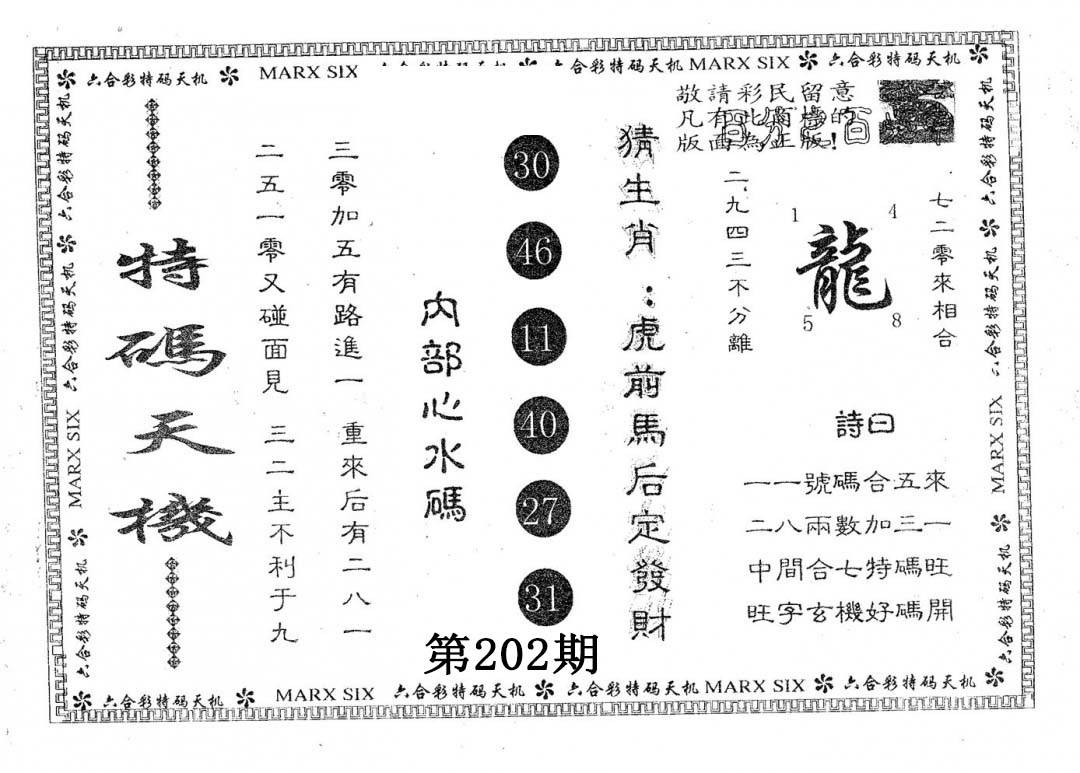 六合彩特码天机 MARX SIX 六合彩特码天机 MARX SIX 六合彩特码天机
敬請彩民留意
凡有此商標的
版面為正版!
七二零來相合
1 4
龍
5 8
二、九四三不分離
詩曰
一一號碼合五來
二八兩數加三一
中間合七特碼旺
旺字玄機好碼開
猜生肖:虎前馬后定發財
30
46
11
40
27
31
内部心水碼
三零加五有路進一 重來后有二八一
二五一零又碰面見 三二主不利于九
特碼天機
第202期
六合彩特码天机
六合彩特码天机
六合彩特码天机
MARX SIX
六合彩特码天机
六合彩特码天机
六合彩特码天机
六合彩特码天机
MARX SIX
六合彩特码天机
六合彩特码天机 MARX SIX 六合彩特码天机 六合彩特码天机 MARX SIX 六合彩特码天机